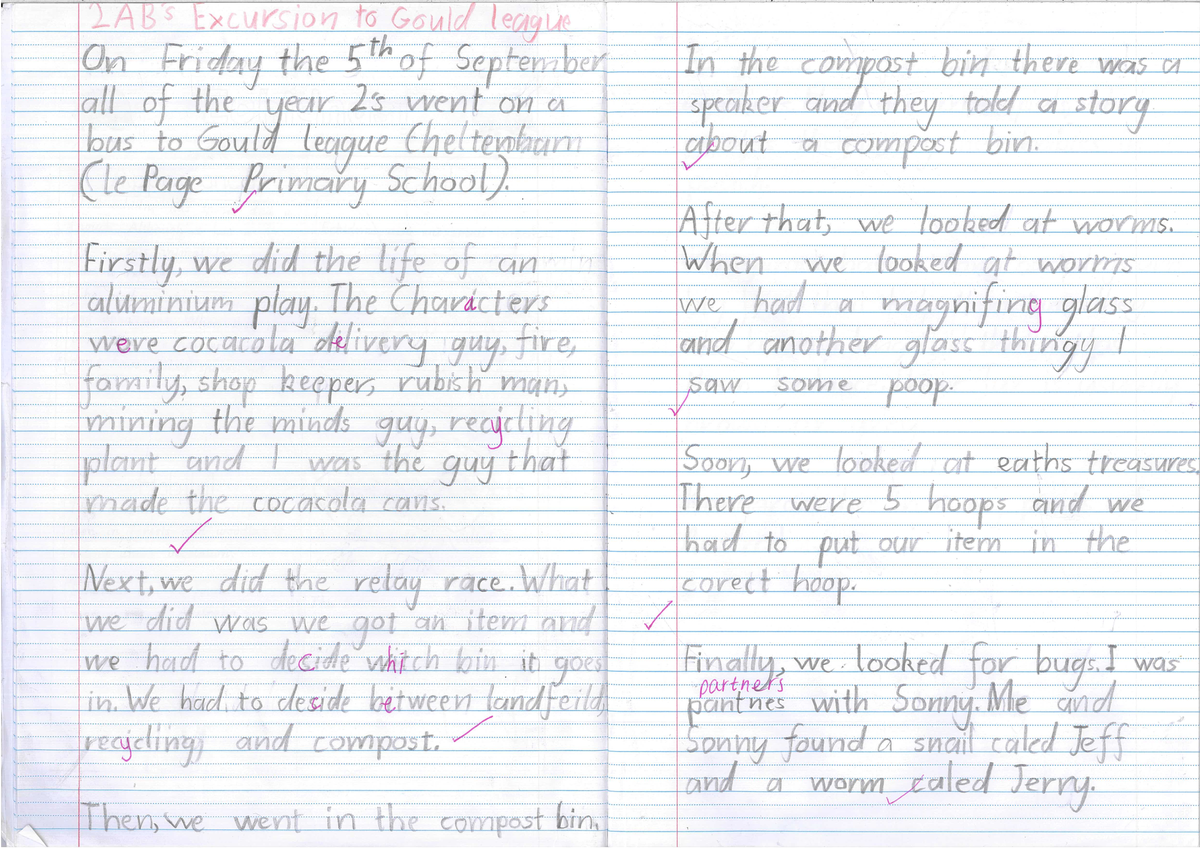 2AB's Excursion to Gould league
On Friday the 5th of September
all of the year 2s went on a
bus to Gould league Cheltenham
(le Page Primary School).
Firstly, we did the life of an
aluminium play. The Characters
were cocacola delivery guy, fire,
family, shop keeper, rubish man,
mining the minds guy, recycling
plant and I was the guy that
made the cocacola cans.
Next, we did the relay race. What
we did was we got an item and
we had to decide whitch bin it goes
in. We had to deside between landfeild,
recycling, and compost.
Then, we went in the compost bin.
In the compost bin there was a
speaker and they told a story
about a compost bin.
After that, we looked at worms.
When we looked at worms
we had a magnifing glass
and another glass thingy I
saw some poop.
Soon, we looked at eaths treasures.
There were 5 hoops and we
had to put our item in the
corect hoop.
Finally, we looked for bugs. I was
partners
pantnes with Sonny. Me and
Sonny found a snail caled Jeff
and a worm caled Jerry.